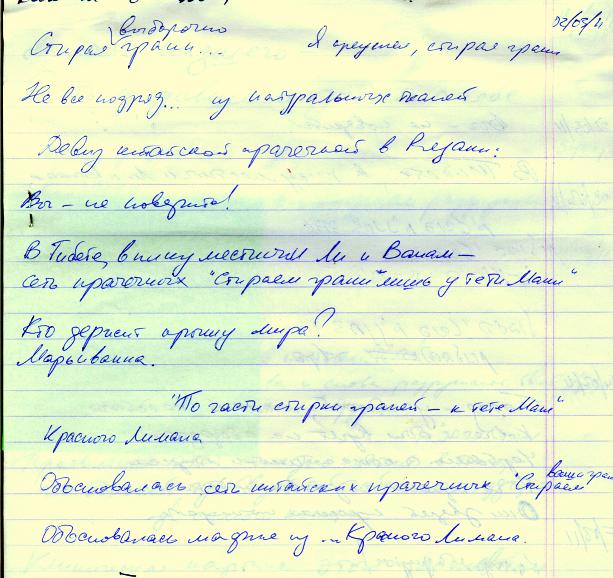 02/05/11
выборочно
Стирая грани... Я преуспел, стирая грани
Не все подряд... из натуральных тканей
Девиз китайской прачечной в Рязани:
Вы – не поверите!
В Тибете, в пику местным Ли и Ванам –
сеть прачечных "Стираем грани" лишь у тети Мани"
Кто держит крышу мира?
Марьиванна.
"По части стирки граней – к тете Мане"
Красного Лимана
Обосновалась сеть китайских прачечных "Стираем ваши гран
Обосновалась из ... Красного Лимана.